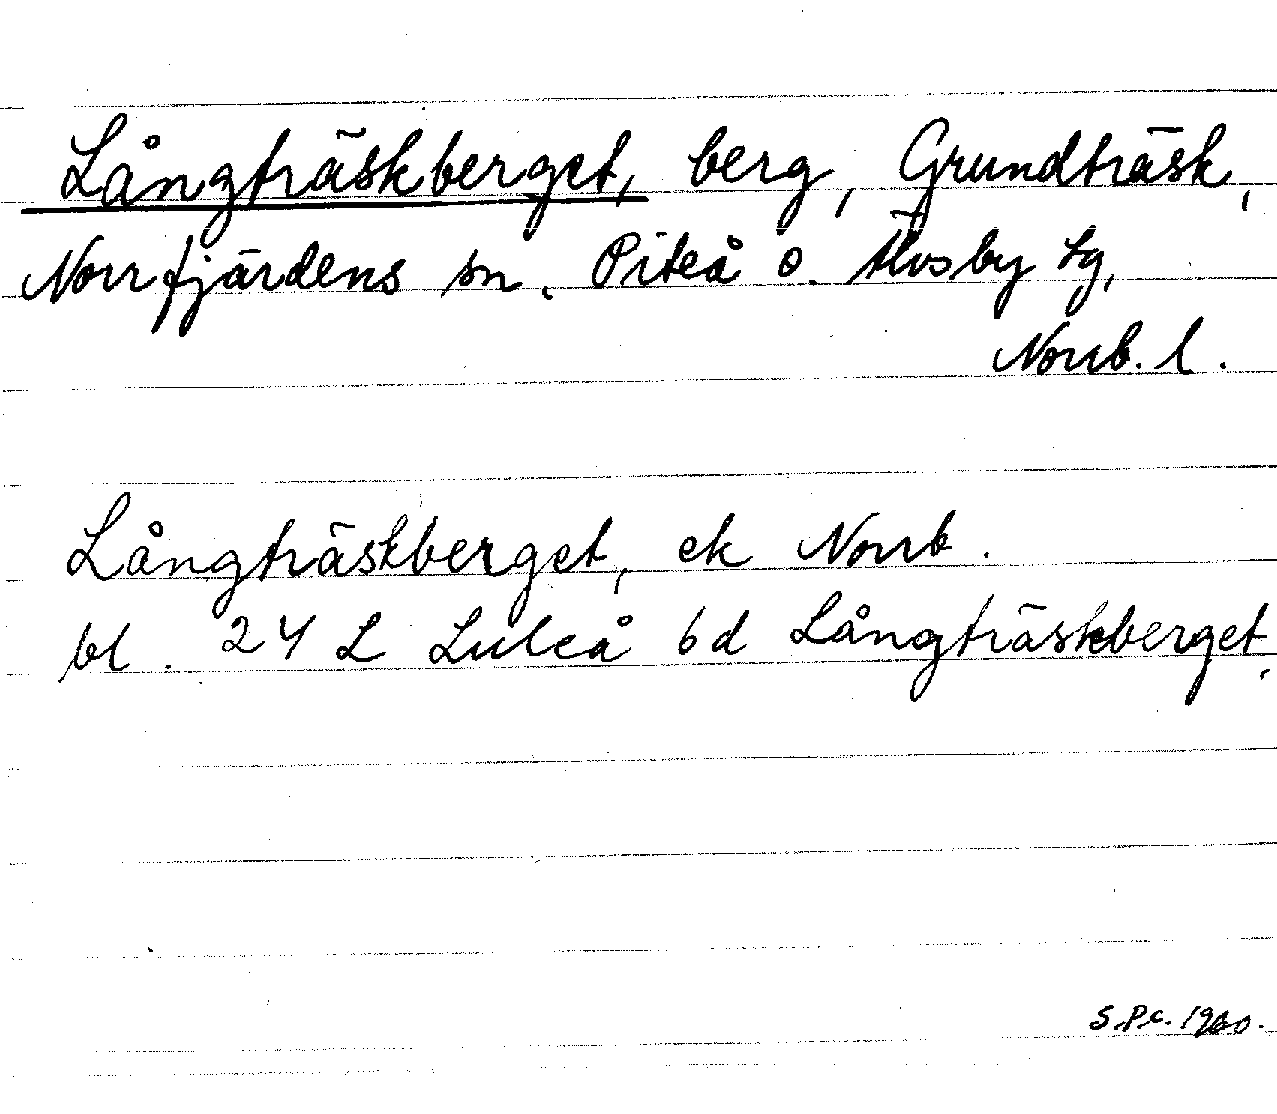 Långträskberget, berg, Grundträsk,
Norrfjärdens sn, Piteå o. Älvsby tg,
Norrb. l.
Långträskberget, ek Norrb.
bl. 24 L Luleå 6d Långträskberget.
S.P.C. 1960.